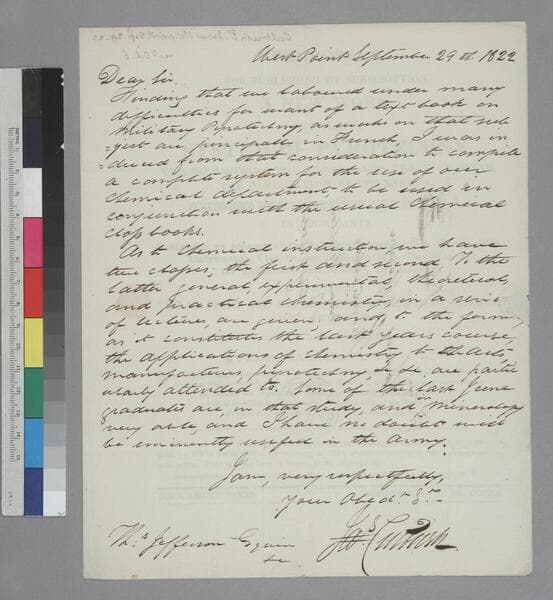 West Point September 29th. 1822
Dear Sir.
Finding that we laboured under many
difficulties for want of a text book on
Military Pyrotechny, as works on that sub
=ject are principally in French, I was in
duced from that consideration to compile
a complete system for the use of our
Chemical department to be used in
conjunction with the usual Chemical
class books.
As to Chemical instruction, we have
two classes, the first and second. To the
latter general, experimental, theoretical,
and practical chemistry, in a series
of lectures, are given, and, to the former,
as it constitutes the last years course
the applications of chemistry to the Arts,
manufactures, pyrotechny, &c &c. are partic
ularly attended to. Some of the last June
graduates are, in that study, and in Mineralogy
very able, and I have no doubt will
be eminently useful in the Army.
I am, very respectfully,
Your Obedt. St.
Jas. Cutbush.
Ths. Jefferson Esquire
&c